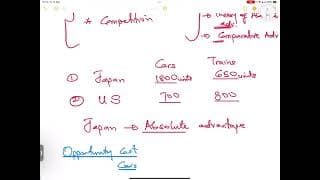 * Competition
→ Theory of
adv.
→ Comparative Adv
Cars Trains
① Japan 1800 units 650 units
② US 700 800
Japan → Absolute advantage
Opportunity Cost
Cars